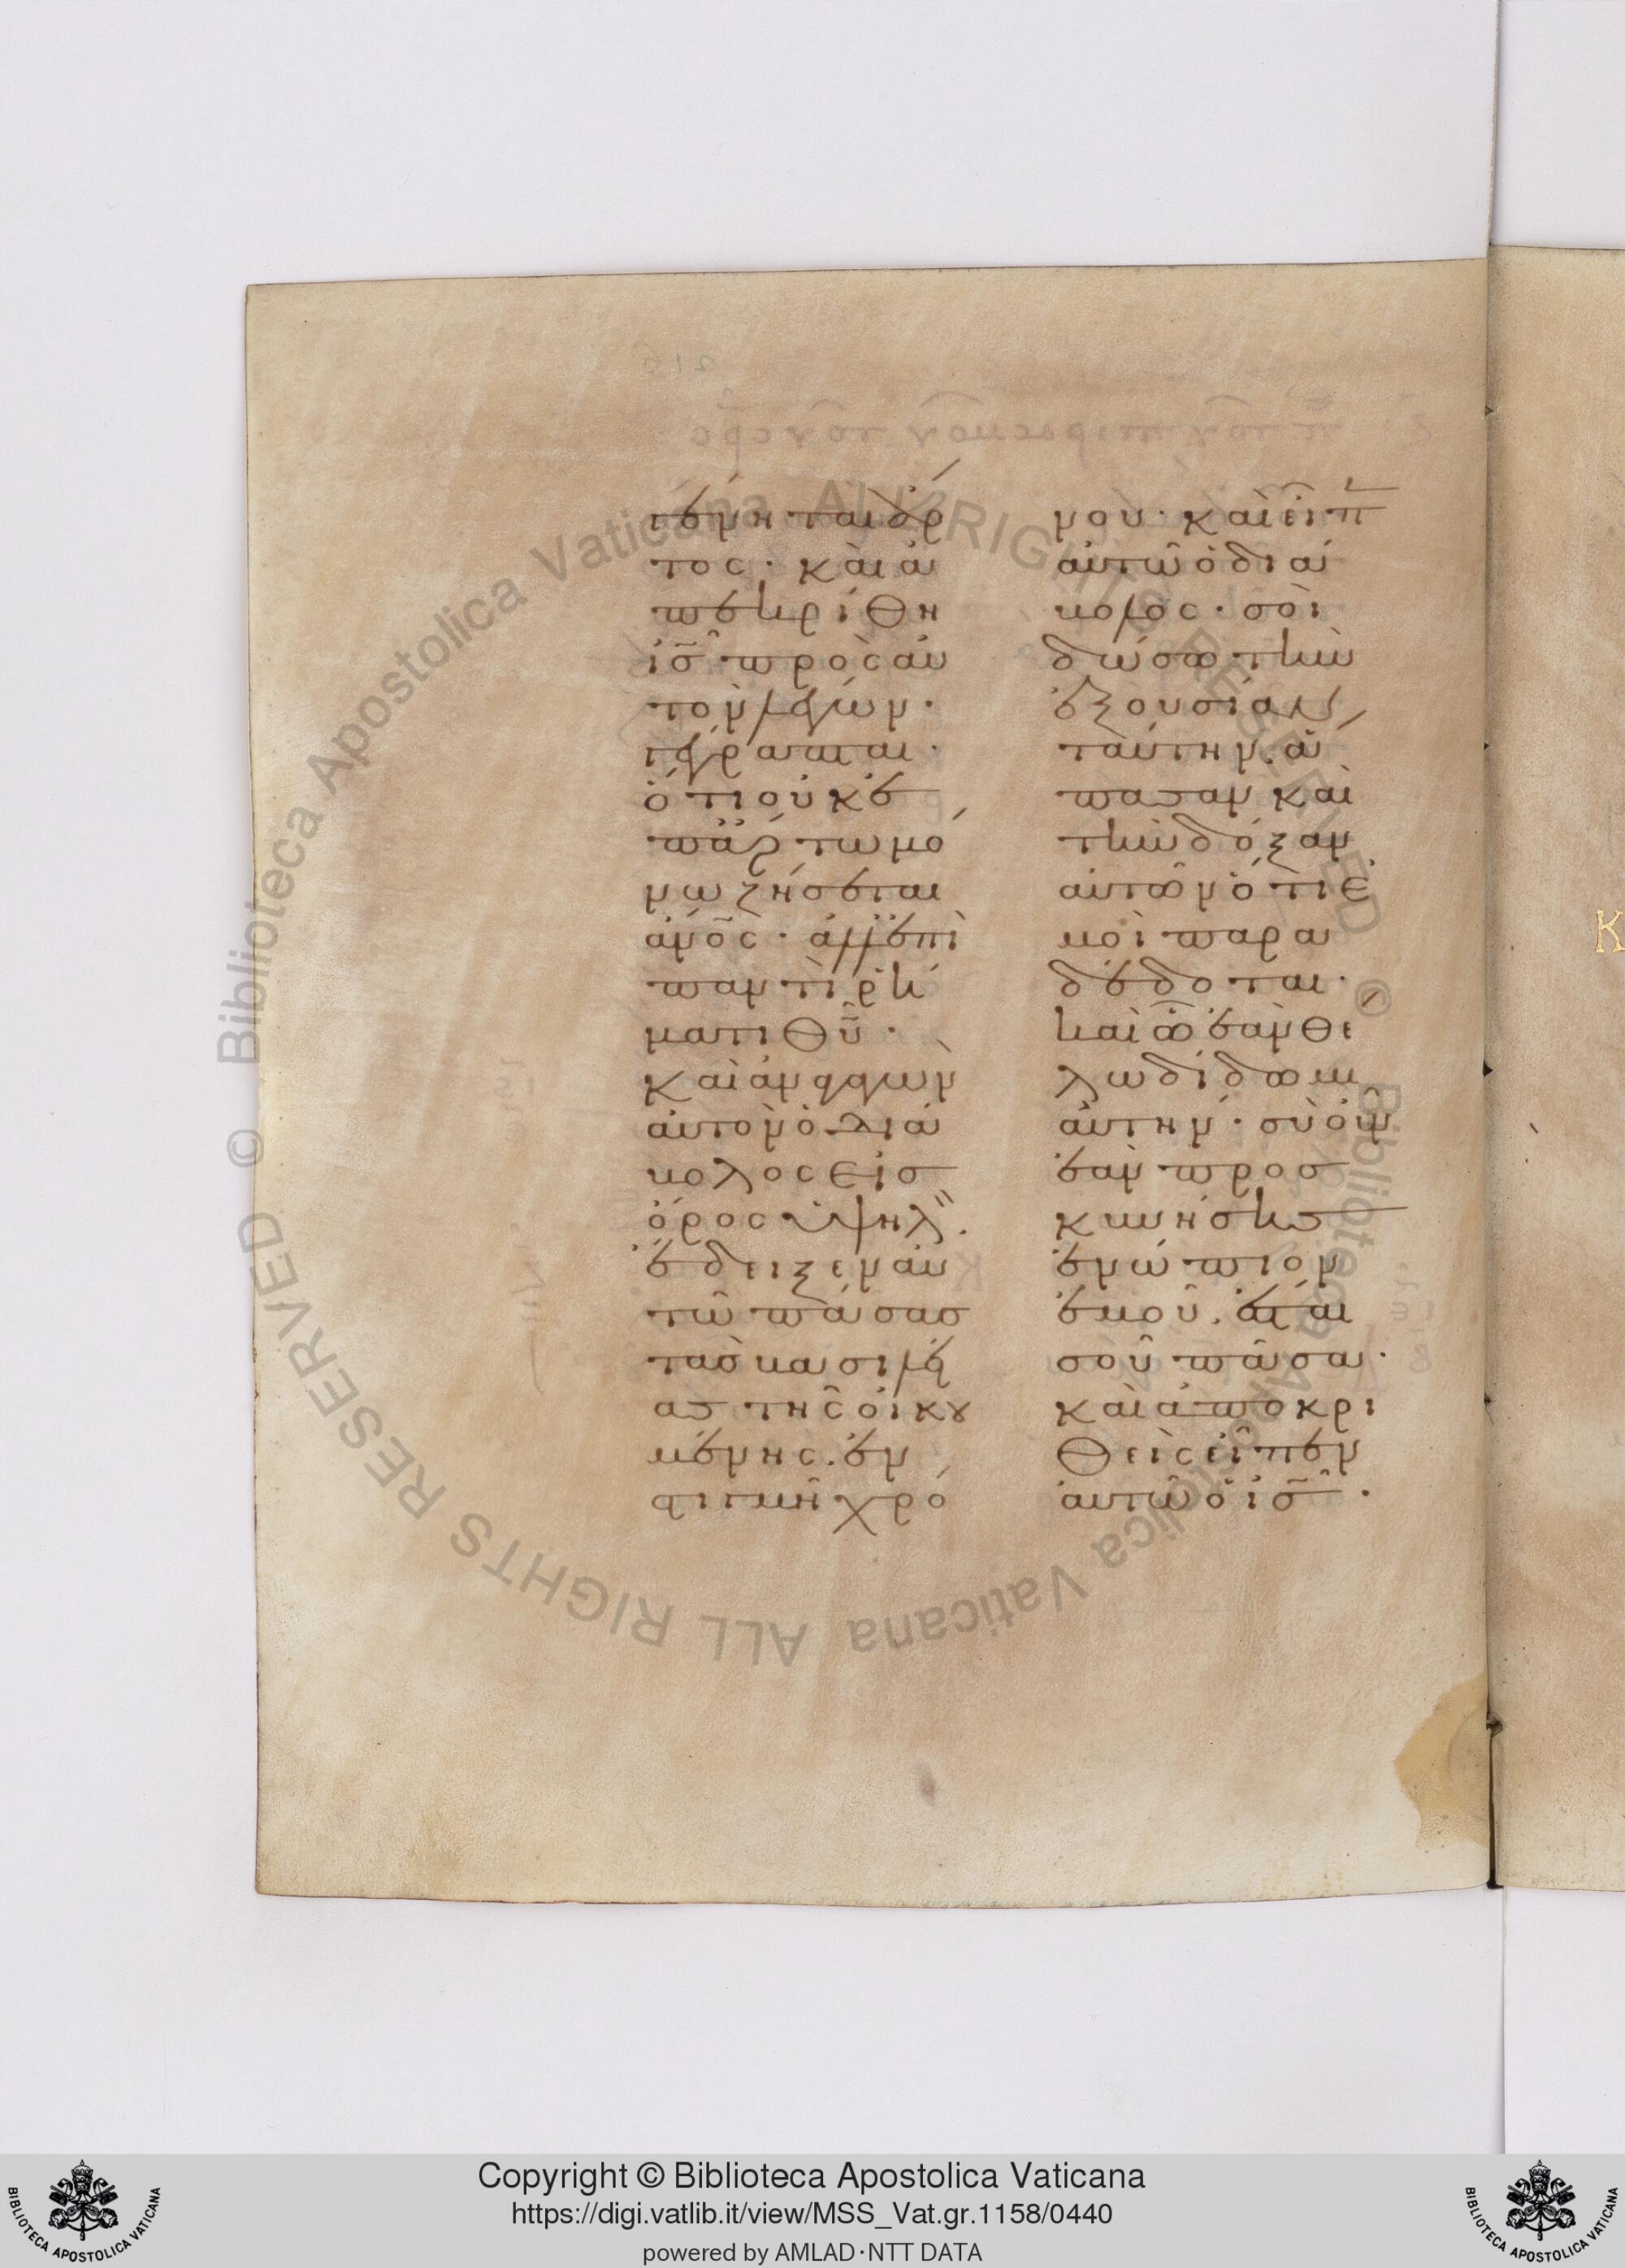 γένηται ἄρ
τος· καὶ ἀ
πεκρίθη
ἰς̅ πρὸς αὐ
τὸν λέγων·
γέγραπται·
ὅτι οὐκ ἐ
π' ἄρτω μό
νω ζήσεται
ἀνο̅ς· ἀλλ' ἐπὶ
παντὶ ῥή
ματι θυ̅·
Καὶ ἀναγαγὼν
αὐτὸν ὁ διά
βολος εἰσ
ὄρος ὑψηλ·
ἔδειξεν αὐ
τῶ πάσασ
τὰσ βασιλεί
ας τῆς οἰκου
μένης. ἐν
στιγμῆ χρό
νου· καὶ εἶπ
αὐτῶ ὁ διά
βολος· σοὶ
δώσω τὴν
ἐξουσίαν
ταύτην ἅ
πασαν καὶ
τὴν δόξαν
αὐτῶν ὅτι ἐ
μοὶ παρα
δέδοται·
καὶ ὧ ἐὰν θέ
λω δίδωμι
αὐτήν· σὺ οὖν
ἐὰν προσ
κυνήσης
ἐνώπιον
ἐμοῦ. ἔσται
σοῦ πᾶσα·
καὶ ἀποκρι
θεὶς εἶπεν
αὐτῶ ὁ ἰς̅·
Copyright © Biblioteca Apostolica Vaticana
https://digi.vatlib.it/view/MSS_Vat.gr.1158/0440
powered by AMLAD·NTT DATA
© Biblioteca Apostolica Vaticana ALL RIGHTS RESERVED
© Biblioteca Apostolica Vaticana ALL RIGHTS RESERVED
BIBLIOTECA APOSTOLICA VATICANA
BIBLIOTECA APOSTOLICA VATICANA
K